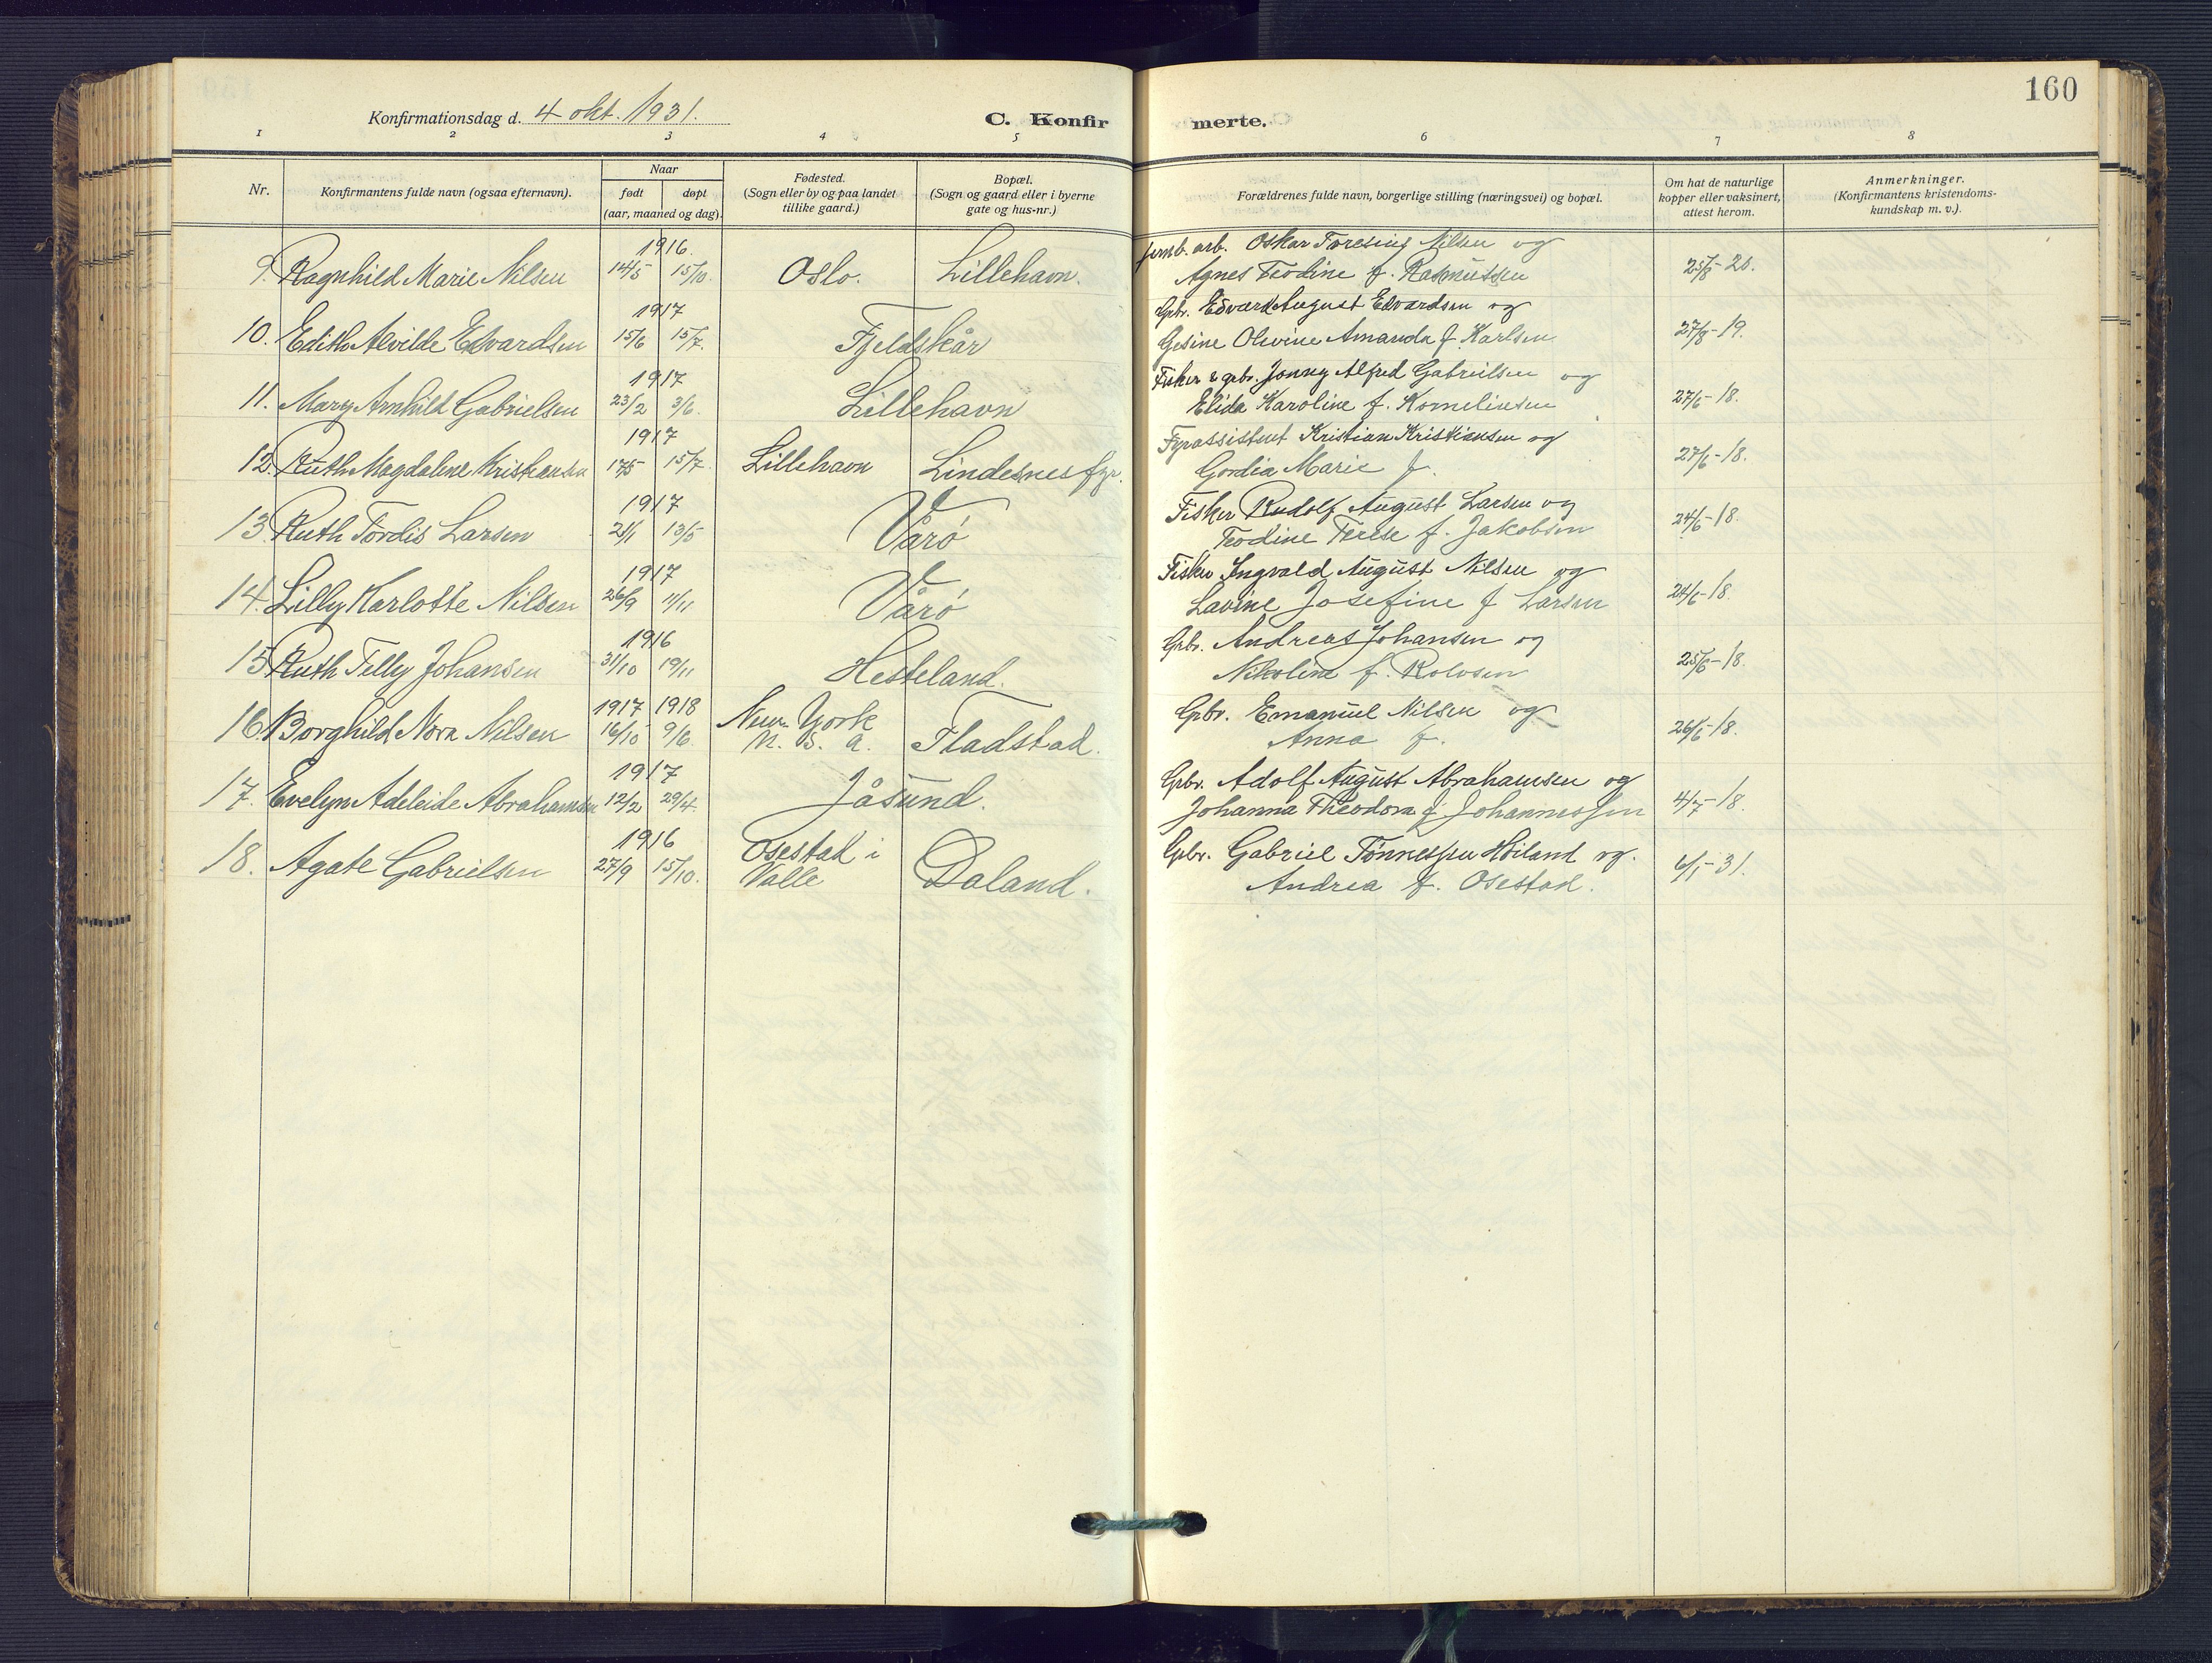 160
Konfirmationsdag d. 4 okt. 1931.
C. Konfirmerte.
1 2 3 4 5 6 7 8
Nr.
Konfirmantens fulde navn (ogsaa efternavn).
Naar
født døpt
(aar, maaned og dag).
Fødested.
(Sogn eller by og paa landet
tillike gaard.)
Bopæl.
(Sogn og gaard eller i byerne
gate og hus-nr.)
Forældrenes fulde navn, borgerlige stilling (næringsvei) og bopæl.
Om hat de naturlige
kopper eller vaksinert,
attest herom.
Anmerkninger.
(Konfirmantens kristendoms-
kundskap m. v.).
1916. arb. Oskar Toresius Nilsen og
9. Ragnhild Marie Nilsen 14/5 15/10. Oslo. Lillehavn. Agnes Teodine f. Rasmussen 25/8-20.
1917 Gbr. Edvard August Edvardsen og
10. Edith Alvilde Edvardsen 15/6 15/7. Fjeldskår Gesine Olevine Amanda f. Karlsen 27/8-19.
1917 Fisker & gbr. Jonny Alfred Gabrielsen og
11. Mary Arnhild Gabrielsen 23/2 3/6. Lillehavn Elida Karoline f. Korneliusen 27/6-18.
1917 Fyrassistent Kristian Kristiansen og
12. Ruth Magdalene Kristiansen 17/5 15/7. Lillehavn Lindesnes fyr. Gordia Marie f. 27/6-18.
1917 Fisker Rudolf August Larsen og
13. Ruth Tordis Larsen 21/1 13/5 Vårø Teodine Terese f. Jakobsen 24/6-18.
1917 Fisker Ingvald August Nilsen og
14. Lilly Karlotte Nilsen 26/9 11/11 Vårø Lavine Josefine f Larsen 24/6-18.
1916 Gbr. Andreas Johansen og
15 Ruth Telly Johansen 31/10 19/11 Hesteland. Nikoline f. Rolvsen 25/6-18.
1917 1918 New York Gbr. Emanuel Nilsen og
16. Borghild Nora Nilsen 16/10 9/6. U. S. A. Fladstad. Anna f. 26/6-18.
1917 Gbr. Adolf August Abrahamsen og
17. Evelyn Adeleide Abrahamsen 12/2 29/4. Jåsund. Johanna Theodora f. Johannessen 4/7-18.
1916 Osestad i Gbr. Gabriel Tønnessen Høiland og.
18. Agate Gabrielsen 27/9 15/10. Valle Daland. Andrea f. Osestad. 6/1-31.